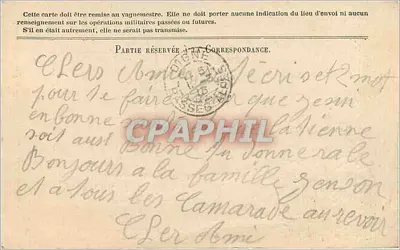 Cette carte doit être remise au vaguemestre. Elle ne doit porter aucune indication du lieu d'envoi ni aucun
renseignement sur les opérations militaires passées ou futures.
S'il en était autrement, elle ne serait pas transmise.
PARTIE RÉSERVÉE A LA CORRESPONDANCE.
DIGNE
BASSES-ALPES
CPAPHIL
CLers Ami Je técris et 2 mot
pour te faire que jesui
en bonne latienne
soit ausi Bonne tu donnerale
Bonjours a la famille jenson
et a tous les Camarade au revoir
CLer Ami